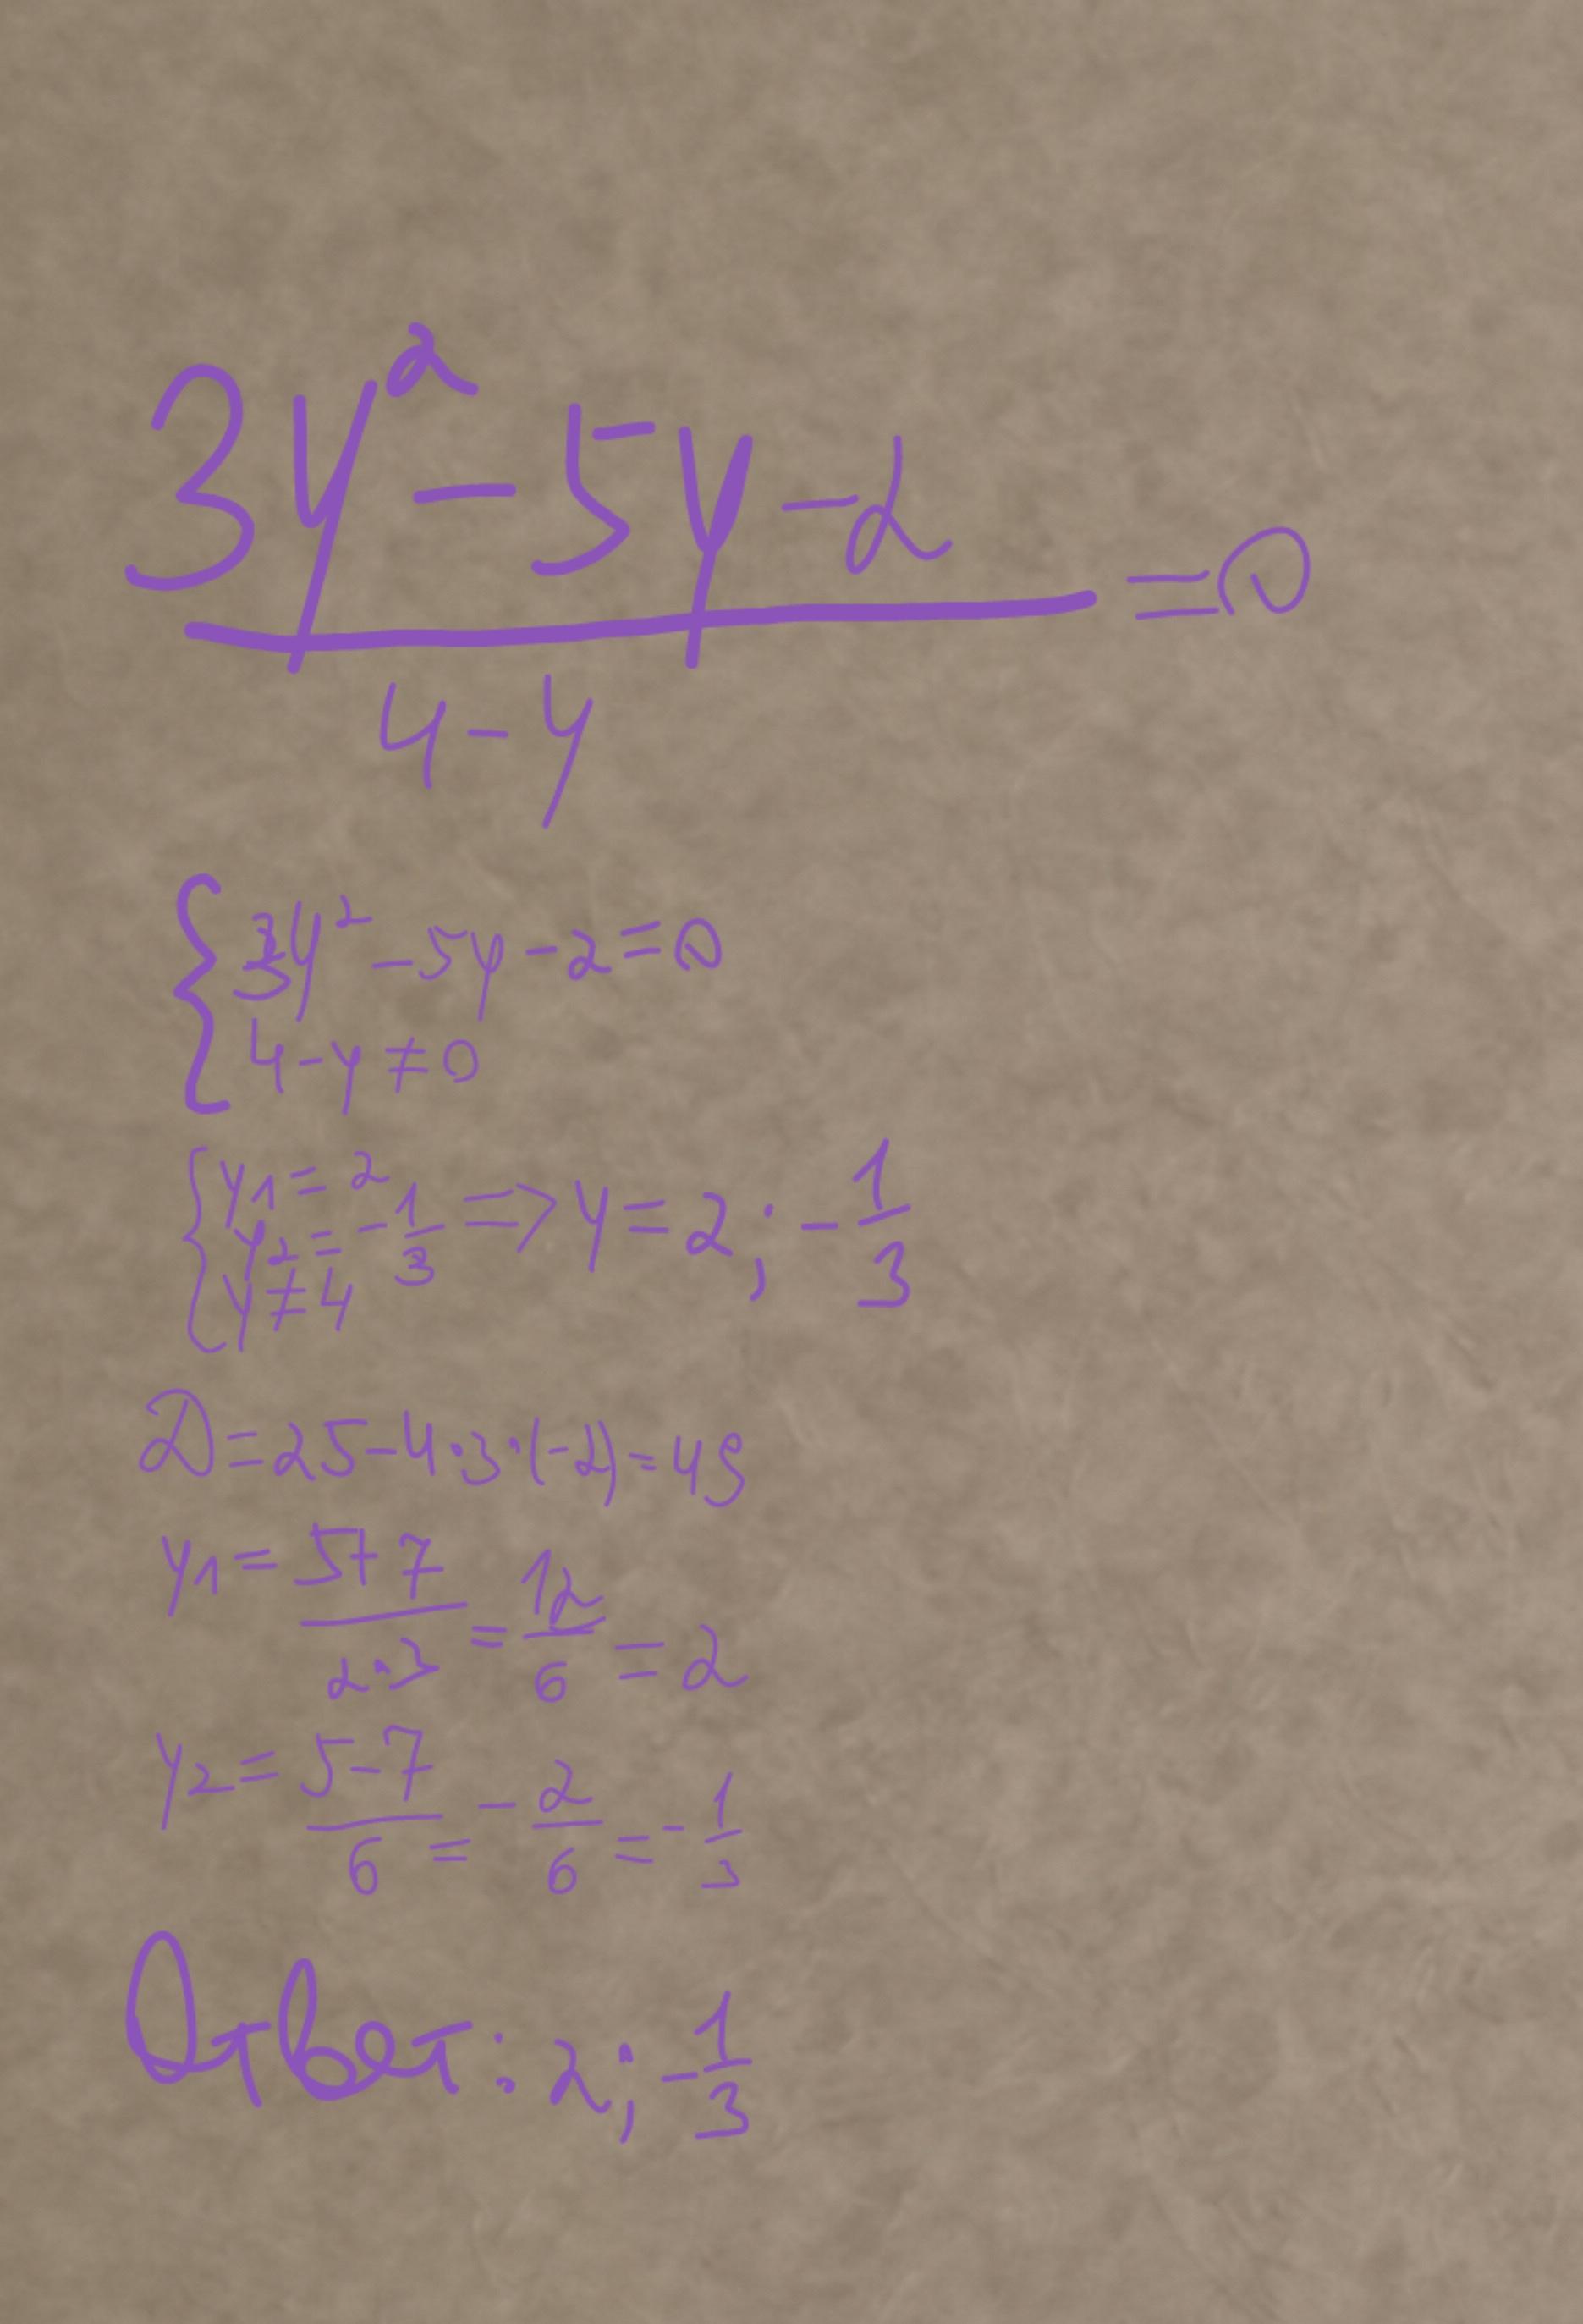 3y² - 5y - 2
_____________ = 0
4 - y
{ 3y² - 5y - 2 = 0
4 - y ≠ 0
{ y1 = 2
y2 = -1/3 => y = 2; -1/3
y ≠ 4
D = 25 - 4·3·(-2) = 49
y1 = (5+7)/(2·3) = 12/6 = 2
y2 = (5-7)/6 = -2/6 = -1/3
Ответ: 2; -1/3